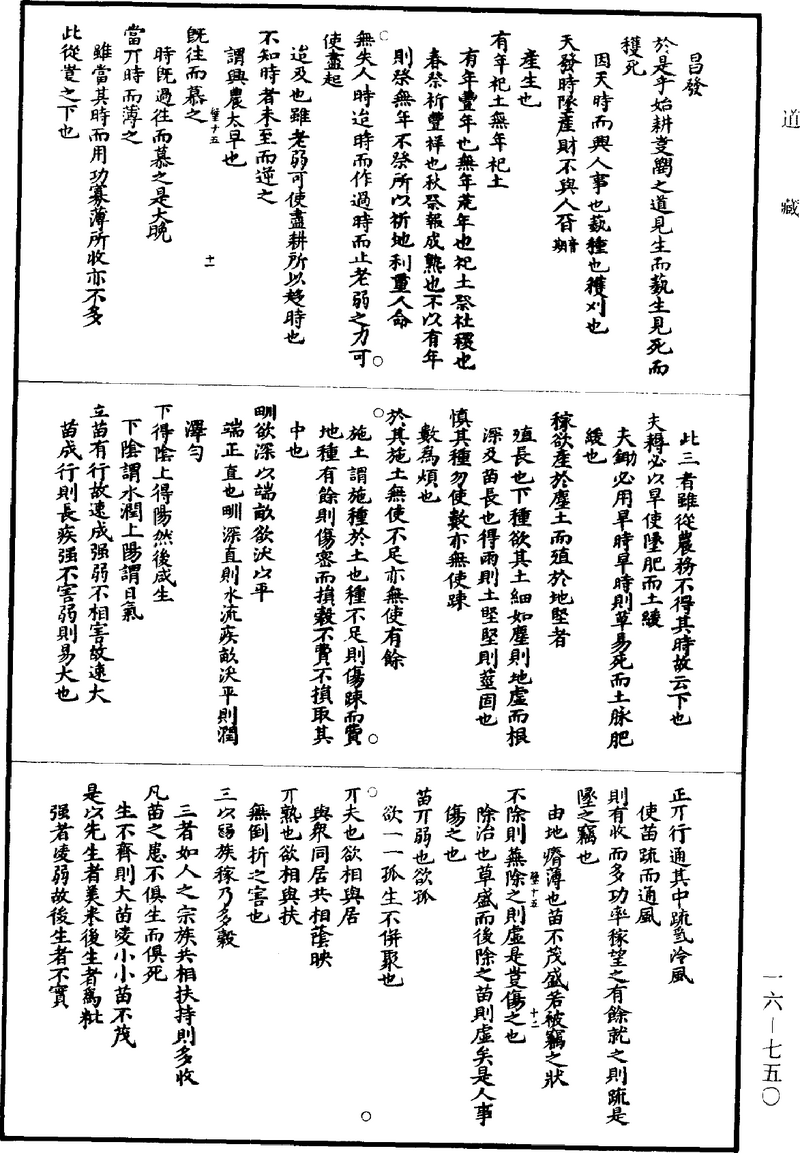 道藏
昌發
於是乎始耕耋閣之道見生而藝生見死而
穫死
因天時而興人事也藝種也穫刈也
天發時墬產財不與人旮音期
產生也
有年祀土無年祀土
有年豐年也無年荒年也祀土祭社稷也
春祭祈豐祥也秋祭報成熟也不以有年
則祭無年不祭所以祈地利重人命
無失人時迨時而作過時而止老弱之力可
使盡起
迨及也雖老弱可使盡耕所以趍時也
不知時者未至而逆之
謂興農太早也
旣往而慕之
壁十五
十一
時旣過往而慕之是大晚
當丌時而薄之
雖當其時而用功寡薄所收亦不多
此從耋之下也
此三者雖從農務不得其時故云下也
夫耨必以旱使墬肥而土緩
夫鋤必用旱時旱時則草易死而土脉肥
緩也
稼欲產於塵土而殖於地堅者
殖長也下種欲其土細如塵則地虛而根
深及苗長也得雨則土堅堅則莖固也
慎其種勿使數亦無使踈
數為煩也
於其施土無使不足亦無使有餘
施土謂施種於土也種不足則傷踈而費
地種有餘則傷密而損穀不費不損取其
中也
甽欲深以端畝欲沃以平
端正直也甽深直則水流疾畝沃平則潤
澤勻
下得陰上得陽然後咸生
下陰謂水潤上陽謂日氣
立苗有行故速成强弱不相害故速大
苗成行則長疾强不害弱則易大也
正丌行通其中疏氥冷風
使苗疏而通風
則有收而多功率稼望之有餘就之則疏是
墬之竊也
由地瘠薄也苗不茂盛若被竊之狀
壁十五
十二
不除則蕪除之則虛是耋傷之也
除治也草盛而後除之苗則虛矣是人事
傷之也
苗丌弱也欲孤
欲一一孤生不併聚也
丌夫也欲相與居
與衆同居共相蔭映
丌熟也欲相與扶
無倒折之害也
三以爲族稼乃多穀
三者如人之宗族共相扶持則多收
凡苗之患不俱生而俱死
生不齊則大苗凌小小苗不茂
是以先生者美米後生者爲粃
强者凌弱故後生者不實
一六—七五〇